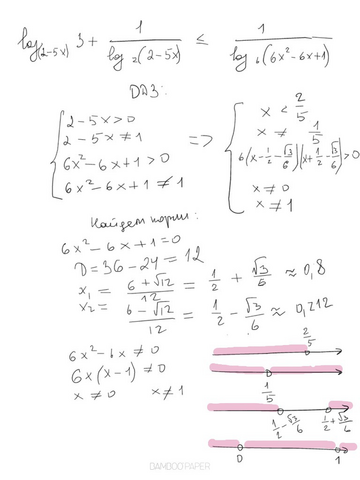 log₍₂₋₅ₓ₎ 3 + 1/(log ₂(2-5x)) ≤ 1/(log ₆(6x²-6x+1))
ОДЗ:
{ 2-5x>0
2-5x≠1
6x²-6x+1>0
6x²-6x+1≠1
=> { x < 2/5
x ≠ 1/5
6(x-1/2-√3/6)(x+1/2-√3/6)>0
x≠0
x≠1
Найдем корни:
6x²-6x+1=0
D=36-24=12
x₁ = (6+√12)/12 = 1/2 + √3/6 ≈ 0,8
x₂ = (6-√12)/12 = 1/2 - √3/6 ≈ 0,212
6x²-6x≠0
6x(x-1)≠0
x≠0 x≠1
2/5
1/5
1/2-√3/6 1/2+√3/6
0 1
BAMBOO PAPER